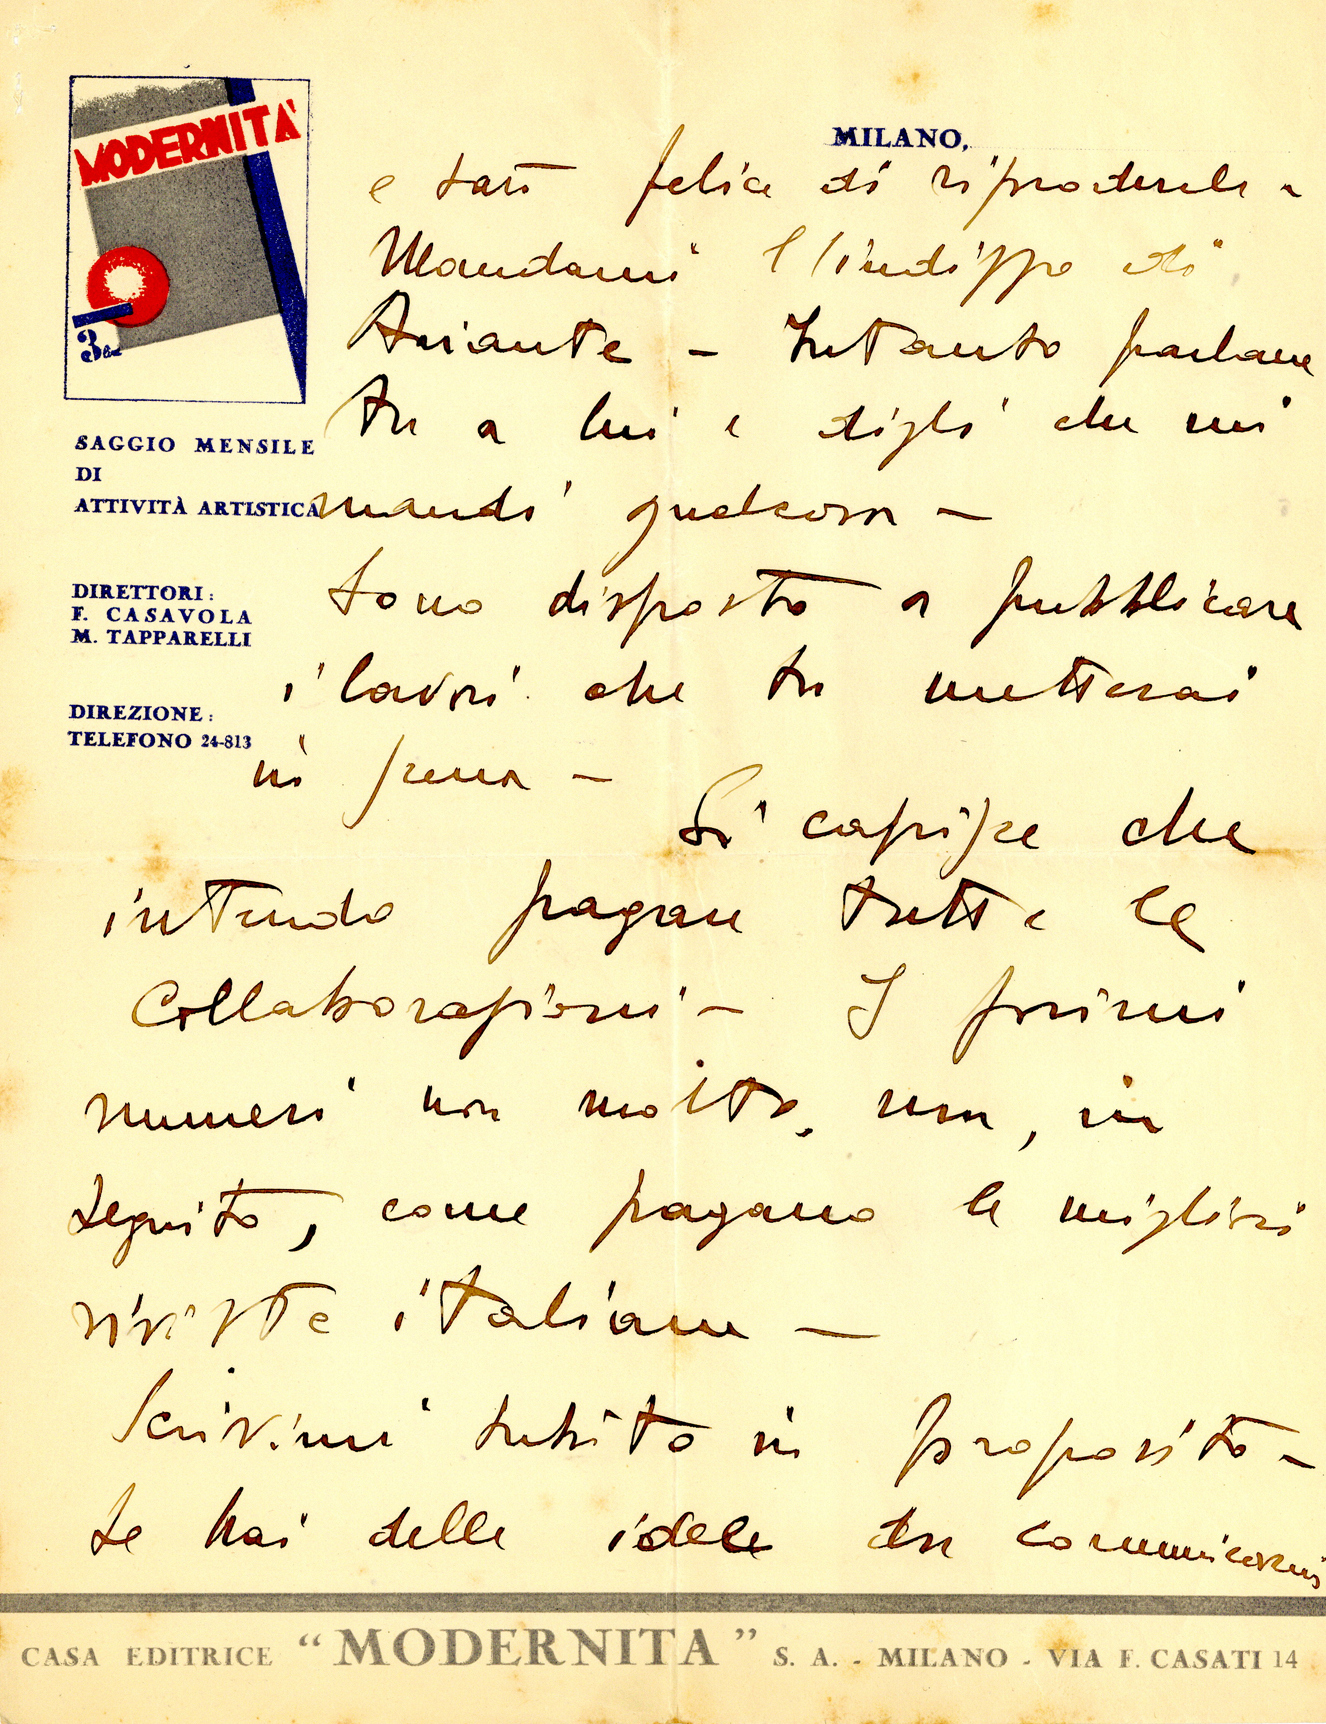 MODERNITÀ
3 Lire
SAGGIO MENSILE
DI
ATTIVITÀ ARTISTICA
DIRETTORI:
F. CASAVOLA
M. TAPPARELLI
DIREZIONE:
TELEFONO 24-813
MILANO,
e sarò felice di riprodurle -
Mandami l'indirizzo di
Ariante - Intanto parlane
tu a lui e digli che mi
mandi qualcosa -
Sono disposto a pubblicare
i lavori che tu metterai
in scena -
Si capisce che
intendo pagare tutte le
Collaborazioni - I primi
numeri non molto, ma, in
seguito, come pagano le migliori
riviste italiane -
Scrivimi subito in proposito -
Se hai delle idee da comunicarmi
CASA EDITRICE "MODERNITA" S. A. - MILANO - VIA F. CASATI 14